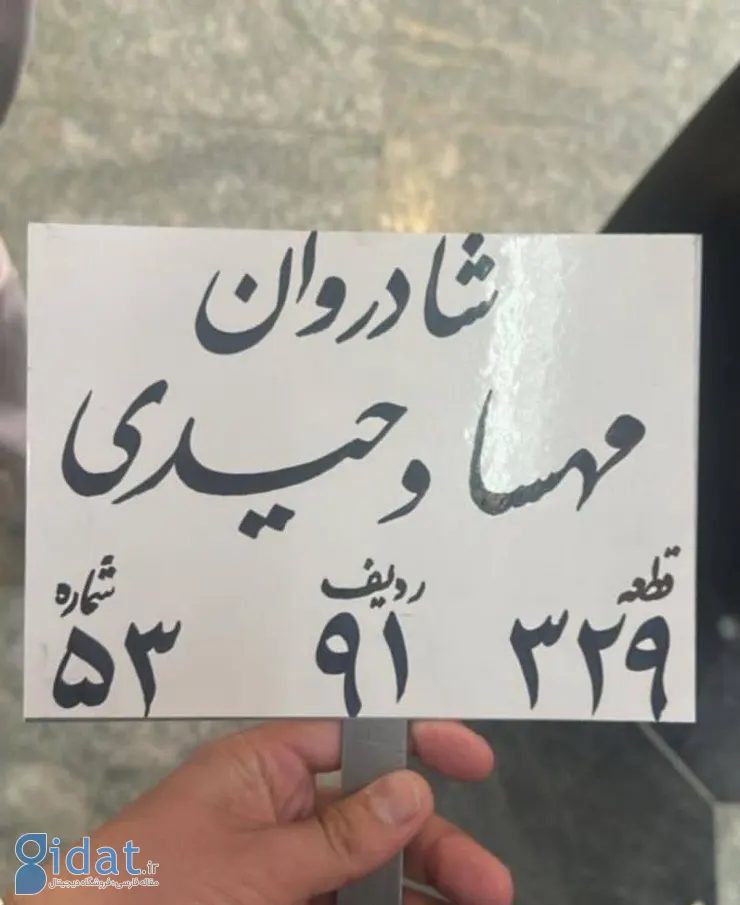 شادروان
مهسا وحیدی
قطعه ردیف شماره
۳۲۹ ۹۱ ۵۳
gidat.ir
مقاله فارسی، فروشگاه دیجیتال